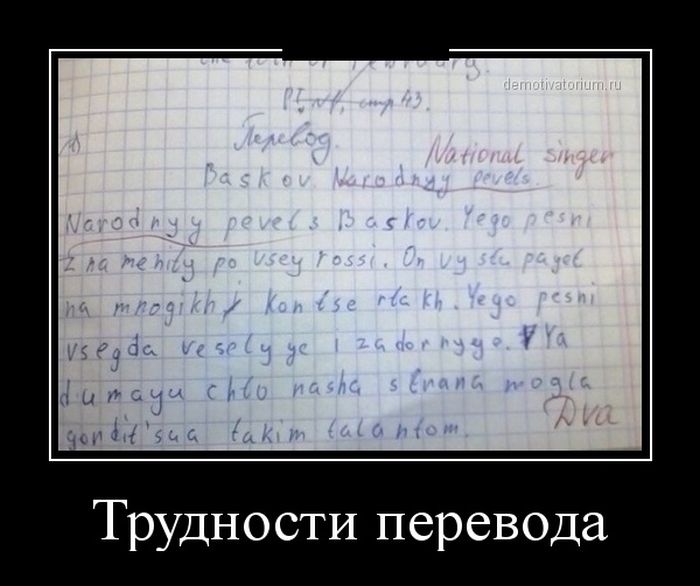 the of February.
demotivatorium.ru
стр 43.
Перевод.
National singer
Baskov. Narodnyy pevets.
Narodnyy pevets Baskov. Yego pesni
znamenity po vsey rossi. On vystupayet
na mnogikh kontsertakh. Yego pesni
vsegda veselyye i zadornyye. Ya
dumayu chto nasha strana mogla
gordit'sya takim talantom.
Dva
Трудности перевода